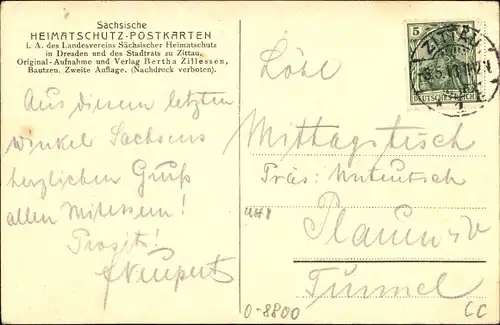 Sächsische
HEIMATSCHUTZ-POSTKARTEN
i. A. des Landesvereins Sächsischer Heimatschutz
in Dresden und des Stadtrats zu Zittau.
Original-Aufnahme und Verlag Bertha Zillessen,
Bautzen. Zweite Auflage. (Nachdruck verboten).
Aus diesem letzten
Winkel Sachsens
herzlichen Gruß
allen Mitessern!
Prosit!
Neupert
5
DEUTSCHES REICH
ZITTAU
Löbl
Mittagstisch
Präs: Unteutsch
Plauen i/V
Tunnel
0-8800
CC